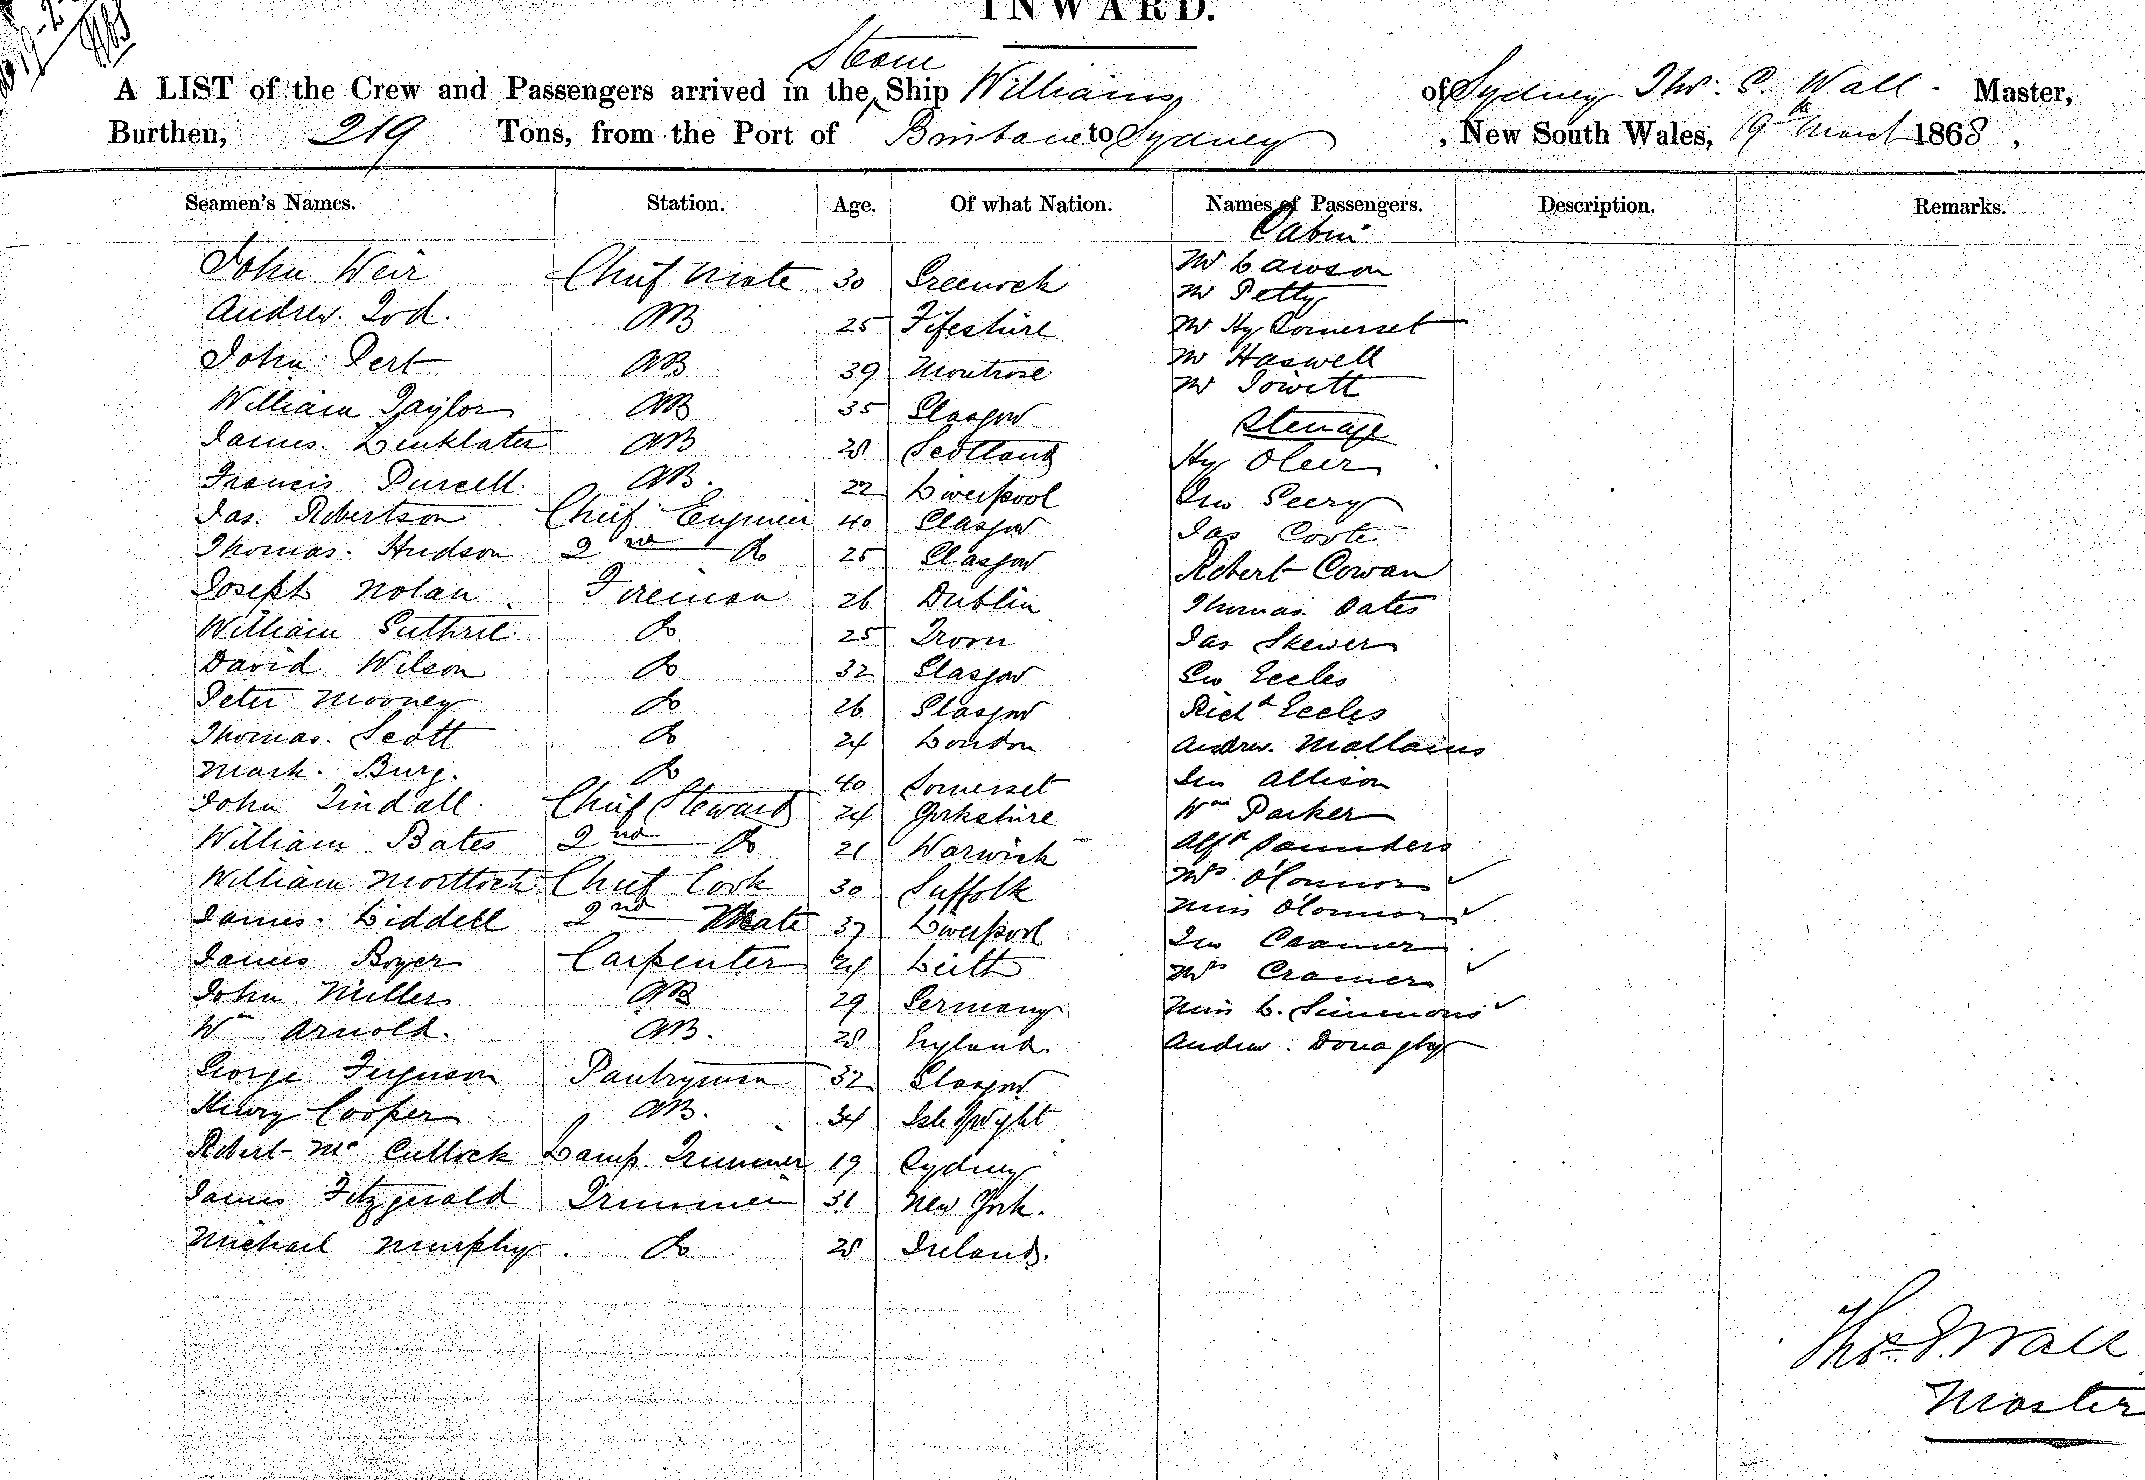 INWARD.
Steam
A LIST of the Crew and Passengers arrived in the Ship Williams of Sydney Thos. C. Wall. Master,
Burthen, 219 Tons, from the Port of Brisbane to Sydney, New South Wales, 19th March 1868,
Seamen's Names. Station. Age. Of what Nation. Names of Passengers. Description. Remarks.
Cabin
John Weir Chief Mate 30 Greenock Mr Lawson
Mr Petty
Andrew Tod. AB 25 Fifeshire Mr Hy Somerset
John Pert AB 39 Montrose Mr Haswell
Mr Jowett
William Taylor AB 35 Glasgow Steerage
James Linklater AB 28 Scotland Hy
Francis Purcell AB. 22 Liverpool Jno Peery
Jas. Robertson Chief Engineer 40 Glasgow Jas Coote
Thomas Hudson 2nd Do 25 Glasgow Robert Cowan
Joseph Nolan Fireman 26 Dublin Thomas Oates
William Guthrie Do 25 Troon Jas Skewer
David Wilson Do 32 Glasgow Geo Eccles
Peter Mooney Do 26 Glasgow Richd Eccles
Thomas Scott Do 24 London Andrew
Mark Burg. Do 40 Somerset Jno Allison
John Tindall Chief Steward 24 Yorkshire Wm Parker
William Bates 2nd Do 21 Warwick Alfd Saunders
William Mortlock Chief Cook 30 Suffolk Mrs O'Connor
James Liddell 2nd Mate 37 Liverpool Miss O'Connor
James Boyer Carpenter 24 Leith Jno Cramer
Mrs Cramer
John Miller AB 29 Germany Miss L. Simmons
Wm Arnold. AB. 28 England. Andrew Donaghy
George Ferguson Pantryman 32 Glasgow
Henry Cooper AB. 34 Isle of Wight
Robert McCullock Lamp Trimmer 19 Sydney
James Fitzgerald Trimmer 31 New York.
Michael Murphy Do 28 Ireland.
Thos. C. Wall
Master